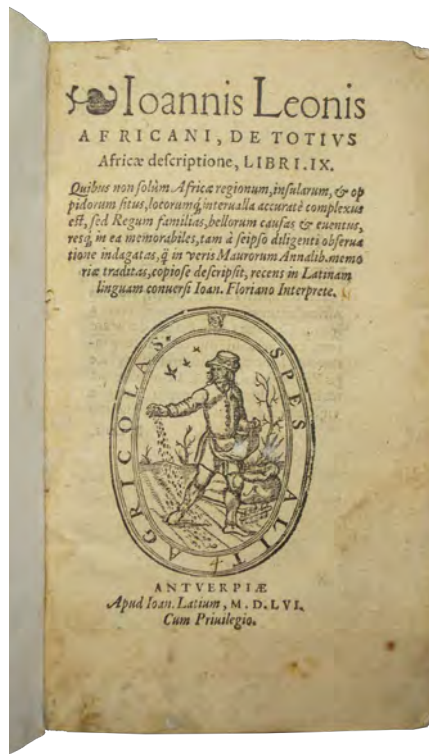 Ioannis Leonis
AFRICANI, DE TOTIVS
Africæ deſcriptione, LIBRI.IX.
Quibus non ſolùm Africæ regionum, inſularum, & op
pidorum ſitus, locorumq́; interualla accuratè complexus
eſt, ſed Regum familias, bellorum cauſas & euentus,
resq́; in ea memorabiles, tam à ſeipſo diligenti obſerua
tione indagatas, q̃ in veris Maurorum Annalib. memo
riæ traditas, copioſe deſcripſit, recens in Latinam
linguam conuerſi Ioan. Floriano Interprete.
SPES ALIT AGRICOLAS.
ANTVERPIÆ
Apud Ioan. Latium, M. D. LVI.
Cum Priuilegio.